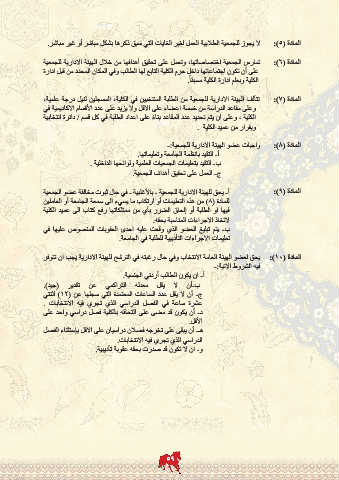 المادة (٥): لا يجوز للجمعية الطلابية العمل لغير الغايات التي سبق ذكرها بشكل مباشر أو غير مباشر.
المادة (٦): تمارس الجمعية اختصاصاتها، وتعمل على تحقيق أهدافها من خلال الهيئة الإدارية للجمعية
على أن تكون اجتماعاتها داخل حرم الكلية التابع لها الطالب وفي المكان المحدد من قبل إدارة
الكلية وبعلم إدارة الكلية مسبقاً.
المادة (٧): تتألف الهيئة الإدارية للجمعية من الطلبة المنتخبين في الكلية، المسجلين لنيل درجة علمية،
وعلى مقاعد الدراسة من خمسة أعضاء على الأقل ولا يزيد على عدد الأقسام الأكاديمية في
الكلية ، وعلى أن يتم تحديد عدد المقاعد بناءً على أعداد الطلبة في كل قسم / دائرة انتخابية
وبقرار من عميد الكلية .
المادة (٨): واجبات عضو الهيئة الإدارية للجمعية:-
أ. التقيد بأنظمة الجامعة وتعليماتها.
ب. التقيد بتعليمات الجمعيات العلمية ولوائحها الداخلية .
ج. العمل على تحقيق أهداف الجمعية.
المادة (٩): أ. يحق للهيئة الإدارية للجمعية ، بالأغلبية ، في حال ثبوت مخالفة عضو الجمعية
للمادة (٨) من هذه التعليمات أو ارتكاب ما يسيء إلى سمعة الجامعة أو العاملين
فيها أو الطلبة أو إلحاق الضرر بأي من ممتلكاتها رفع كتاب إلى عميد الكلية
لاتخاذ الإجراءات المناسبة بحقه.
ب. يتم تبليغ العضو الذي وقعت عليه إحدى العقوبات المنصوص عليها في
تعليمات الإجراءات التأديبية للطلبة في الجامعة.
المادة (١٠): يحق لعضو الهيئة العامة الانتخاب وفي حال رغبته في الترشح للهيئة الإدارية يجب أن تتوفر
فيه الشروط الآتية:-
أ. أن يكون الطالب أردني الجنسية.
ب. أن لا يقل معدله التراكمي عن تقدير (جيد).
ج. أن لا يقل عدد الساعات المعتمدة التي سجلها عن (١٢) اثنتي
عشرة ساعة في الفصل الدراسي الذي تجري فيه الانتخابات .
د. أن يكون قد مضى على التحاقه بالكلية فصل دراسي واحد على
الأقل.
هـ. أن يبقى على تخرجه فصلان دراسيان على الأقل بإستثناء الفصل
الدراسي الذي تجري فيه الانتخابات.
و. أن لا تكون قد صدرت بحقه عقوبة تأديبية.